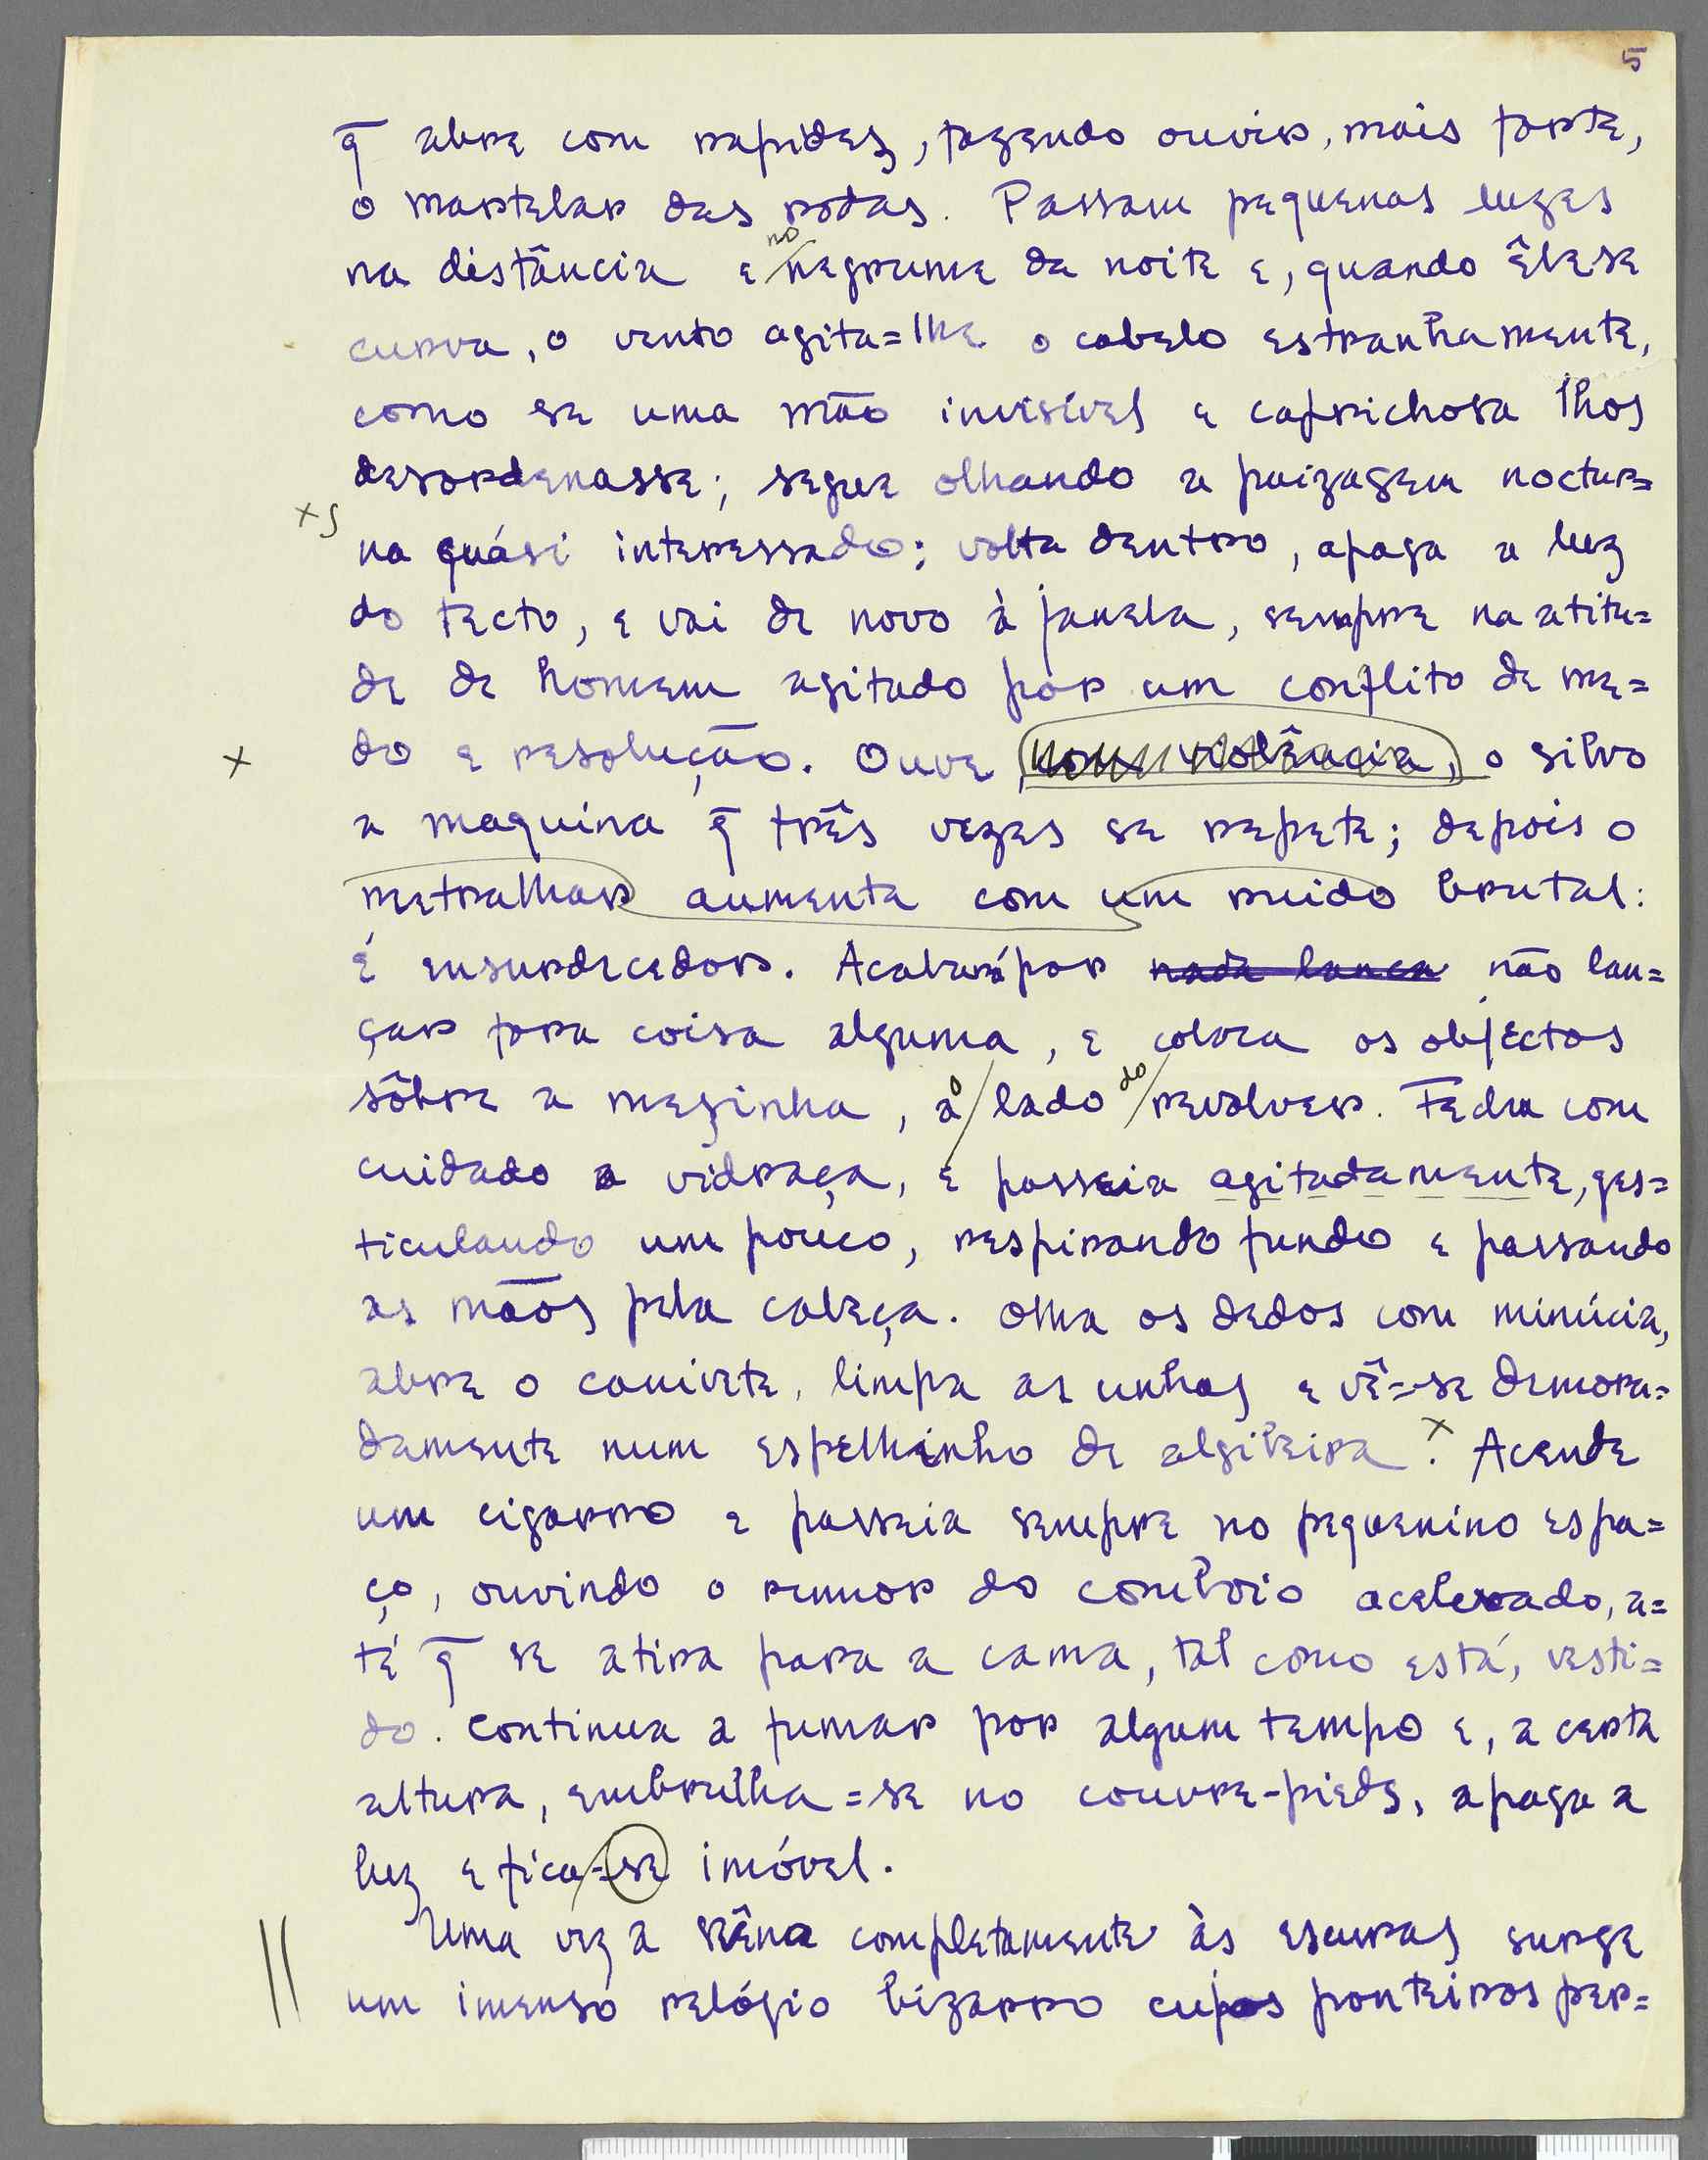 5
q̄ abre com rapidez, fazendo ouvir, mais forte,
o martelar das rodas. Passam pequenas luzes
no
na distância e negrume da noite e, quando êle se
curva, o vento agita=lhe o cabelo estranhamente,
como se uma mão invisível e caprichosa lhos
desordenasse; segue olhando a paizagem noctur=
x s
na quási interessado; volta dentro, apaga a luz
do tecto, e vai de novo à janela, sempre na atitu=
de de homem agitado por um conflito de me=
x do e resolução. Ouve, com violência, o silvo
a maquina q̄ três vezes se repete; depois o
metralhar aumenta com um ruido brutal:
É ensurdecedor. Acabará por nada lança não lan=
çar fora coisa alguma, e coloca os objectos
sôbre a mezinha, ao lado do revolver. Fecha com
cuidado a vidraça, e passeia agitadamente, ges=
ticulando um pouco, respirando fundo e passando
as mãos pela cabeça. Olha os dedos com minúcia,
abre o canivete, limpa as unhas e vê=se demora=
damente num espelhinho de algibeira. x Acende
um cigarro e passeia sempre no pequenino espa=
ço, ouvindo o rumor do comboio acelerado, a=
té q̄ se atira para a cama, tal como está, vesti=
do. Continua a fumar por algum tempo e, a certa
altura, embrulha=se no couvre-pieds, apaga a
luz e fica=se imóvel.
Uma vez a scêna completamente às escuras surge
um imenso relógio bizarro cujos ponteiros per=